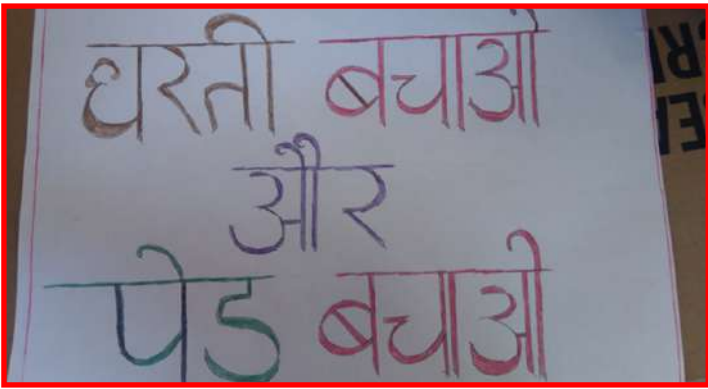 धरती बचाओ
और
पेड बचाओ